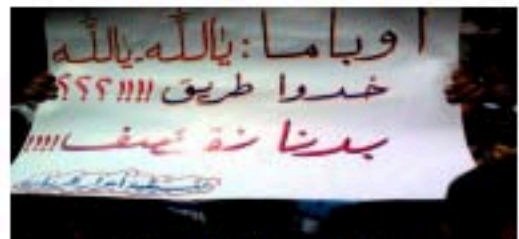 أوباما : يالله.يالله
خدوا طريق !!!!؟؟؟
بدنا نقصف !!!!